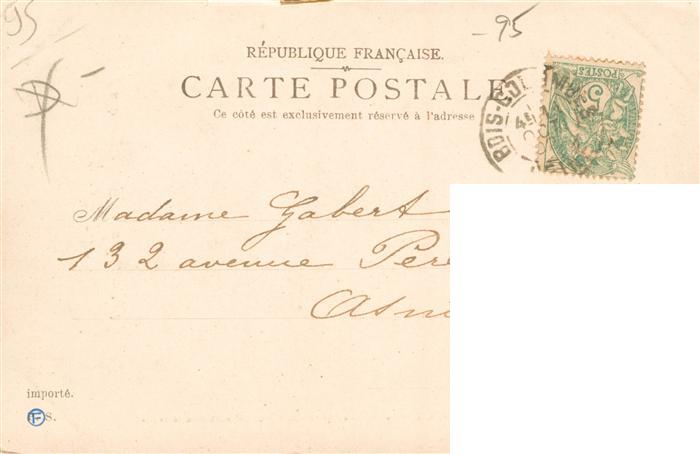 95
-95
RÉPUBLIQUE FRANÇAISE.
CARTE POSTALE
Ce côté est exclusivement réservé à l'adresse
POSTES
5
BOIS-COL
Madame Gabert
132 avenue Pere
Asni
importé.
F S.